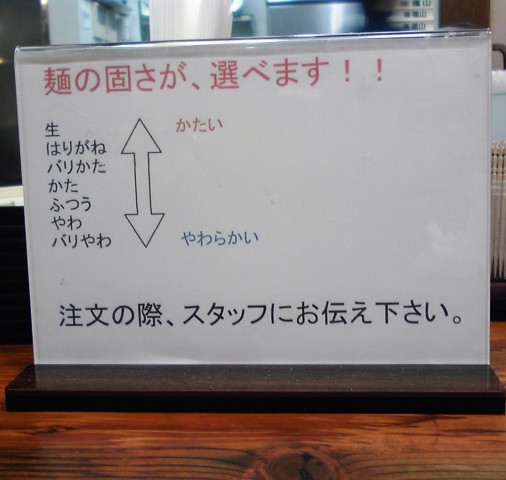 麺の固さが、選べます！！
生
かたい
はりがね
バリかた
かた
ふつう
やわ
バリやわ
やわらかい
注文の際、スタッフにお伝え下さい。